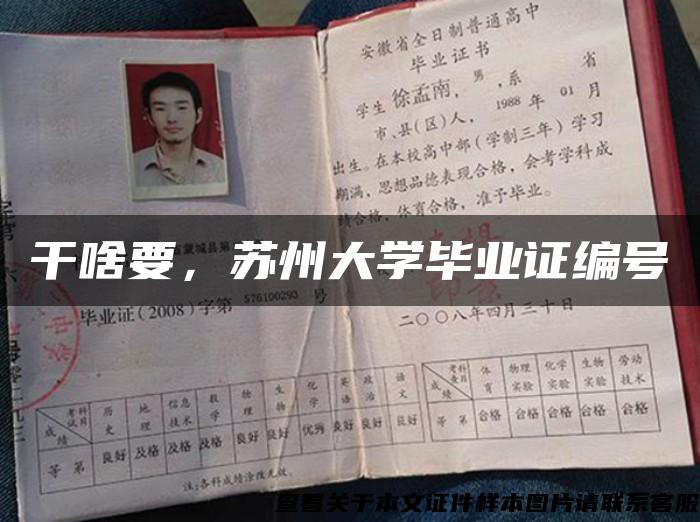 安徽省全日制普通高中
毕业证书
学生徐孟南，男，系 省
市、县(区)人，1988年01月
出生。在本校高中部(学制三年)学习
期满，思想品德表现合格，会考学科成
绩合格，体育合格，准予毕业。
干啥要，苏州大学毕业证编号
毕业证(2008)字第576100293号
二〇〇八年四月三十日
考试科目 历史 地理 信息技术 数学 物理 生物 化学 英语 政治 语文
成绩
等第 良好 及格 及格 及格 良好 良好 优秀 良好 良好 良好
注:各科成绩涂改无效。
考查科目 体育 物理实验 化学实验 生物实验 劳动技术
成绩
等第 合格 合格 合格 合格 合格
查看关于本文证件样本图片请联系客服